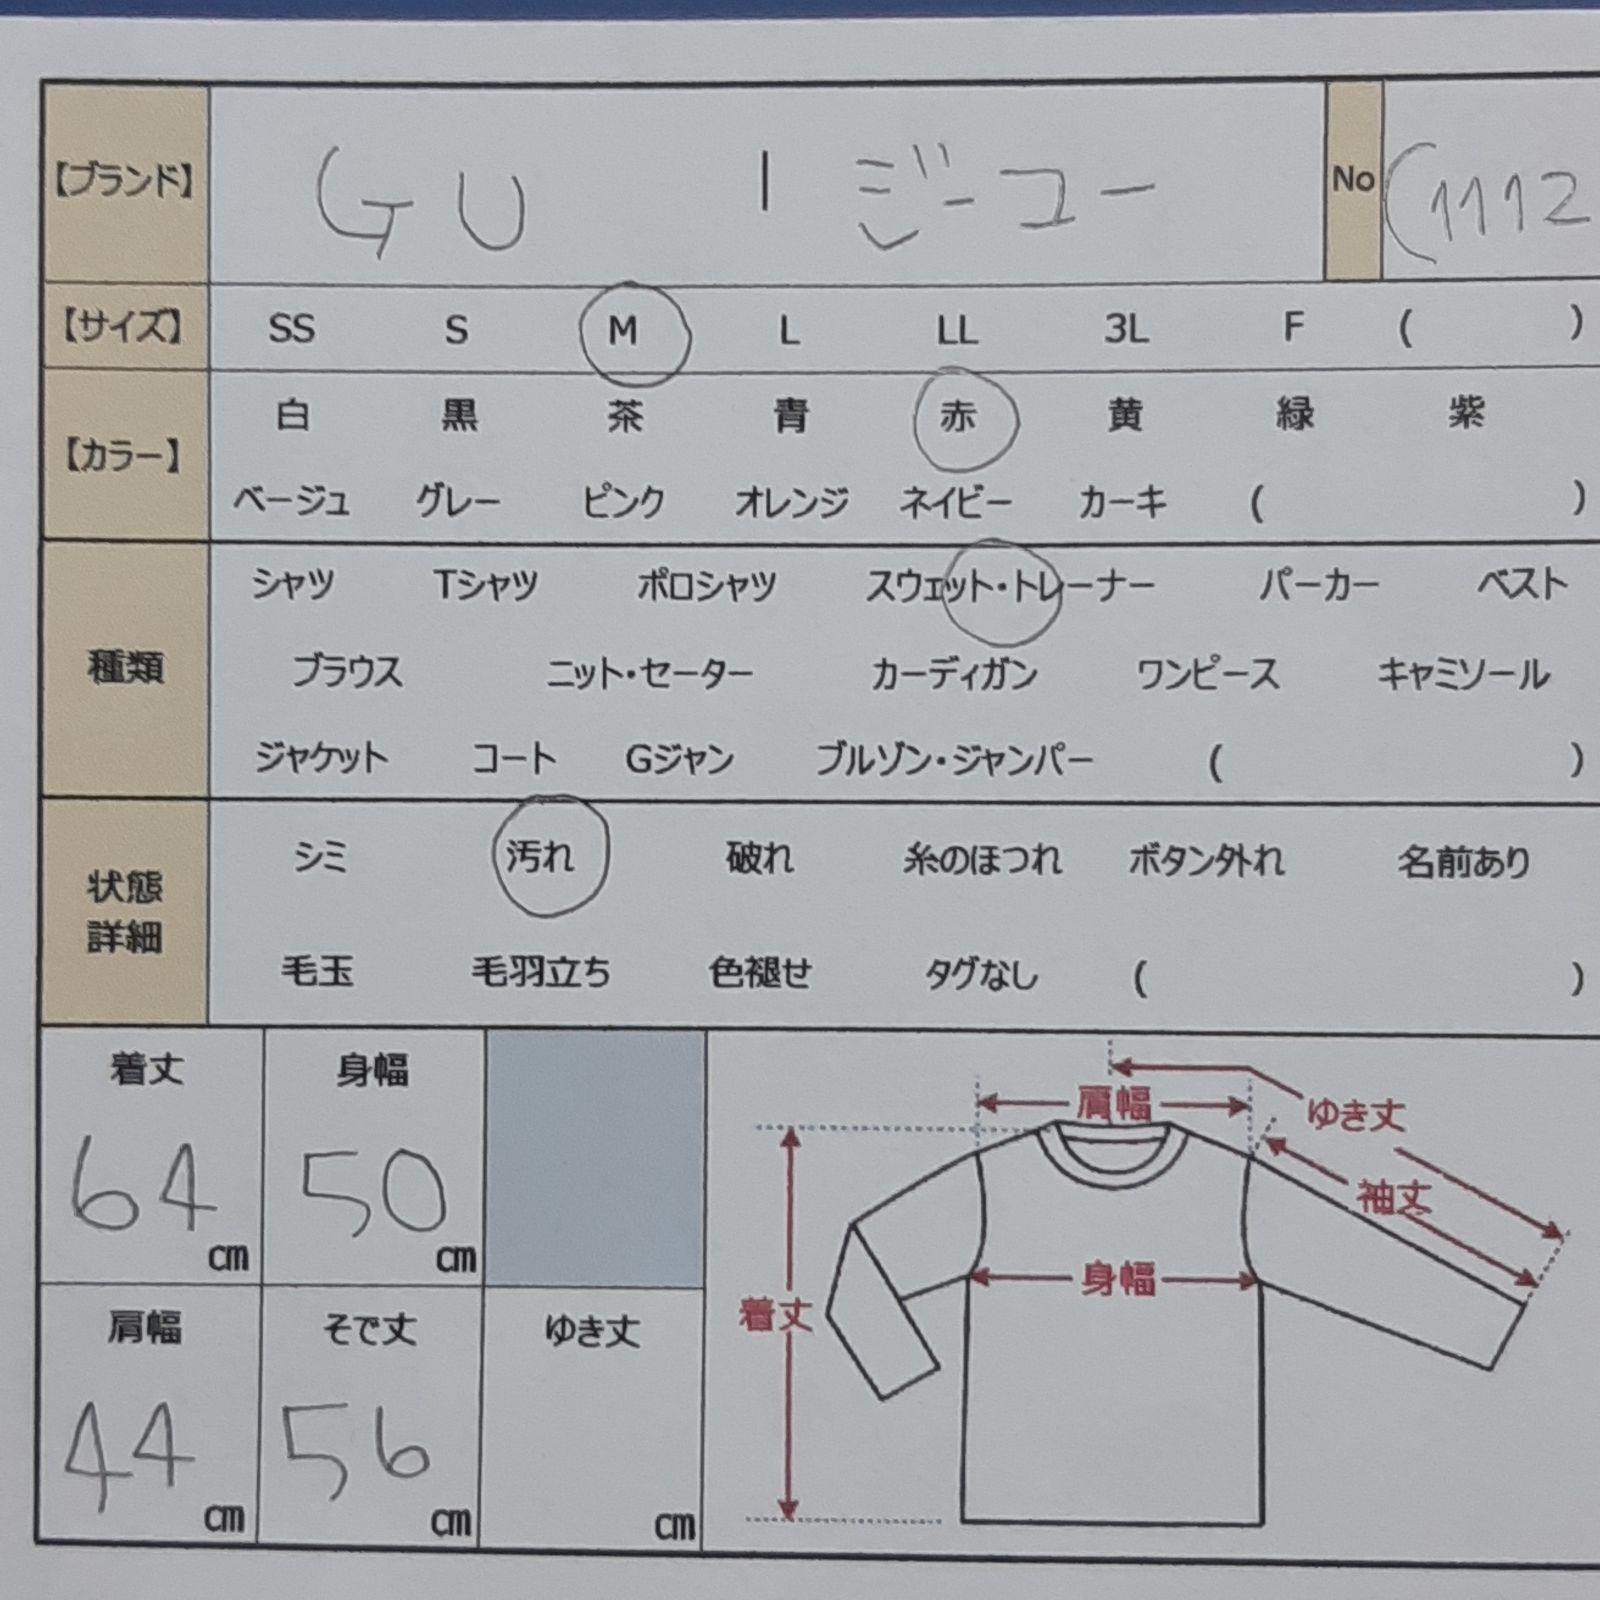 【ブランド】 GU | ジーユー No (1112
【サイズ】 SS S M L LL 3L F ( )
【カラー】 白 黒 茶 青 赤 黄 緑 紫
ベージュ グレー ピンク オレンジ ネイビー カーキ ( )
種類 シャツ Tシャツ ポロシャツ スウェット・トレーナー パーカー ベスト
ブラウス ニット・セーター カーディガン ワンピース キャミソール
ジャケット コート Gジャン ブルゾン・ジャンパー ( )
状態
詳細
シミ 汚れ 破れ 糸のほつれ ボタン外れ 名前あり
毛玉 毛羽立ち 色褪せ タグなし ( )
着丈 身幅
64 cm 50 cm
肩幅 そで丈 ゆき丈
44 cm 56 cm cm
肩幅
ゆき丈
袖丈
身幅
着丈